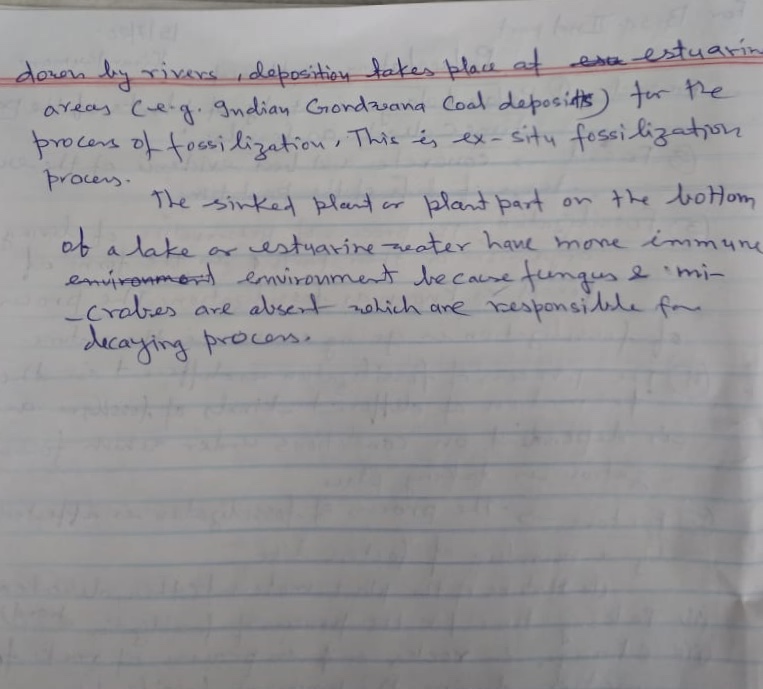 down by rivers, deposition takes place at estuarin
areas (e.g. Indian Gondwana Coal deposits) for the
process of fossilization, This is ex-situ fossilization
process.
The sinked plant or plant part on the bottom
of a lake or estuarine water have more immune
environment environment because fungus & mi-
-crobes are absent which are responsible for
decaying process.